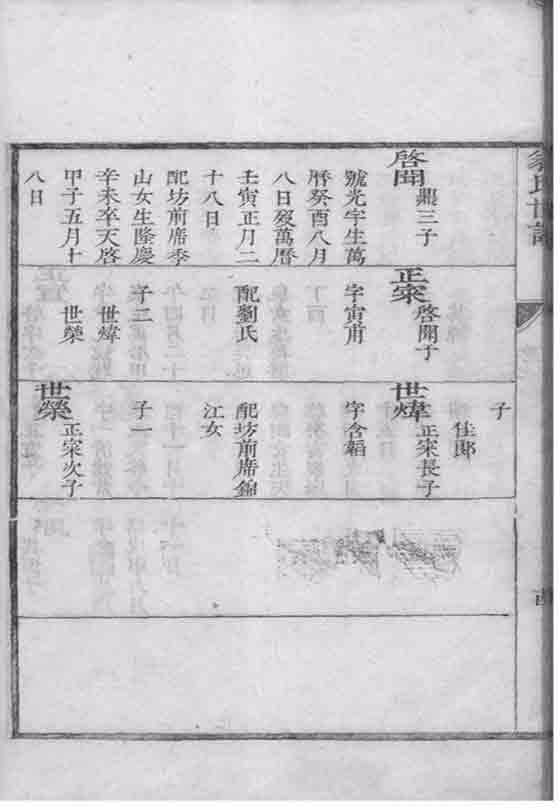 啓開
鼎三子
號光宇生萬
曆癸酉八月
八日歿萬曆
壬寅正月二
十八日
配坊前席季
山女生隆慶
辛未卒天啓
甲子五月十
八日
正寀
啓開子
字寅甫
配劉氏
子二
世煒
世榮
子
佳郎
世煒
正寀長子
字含韜
配坊前席錦
江女
子一
世榮
正寀次子
氏世譜